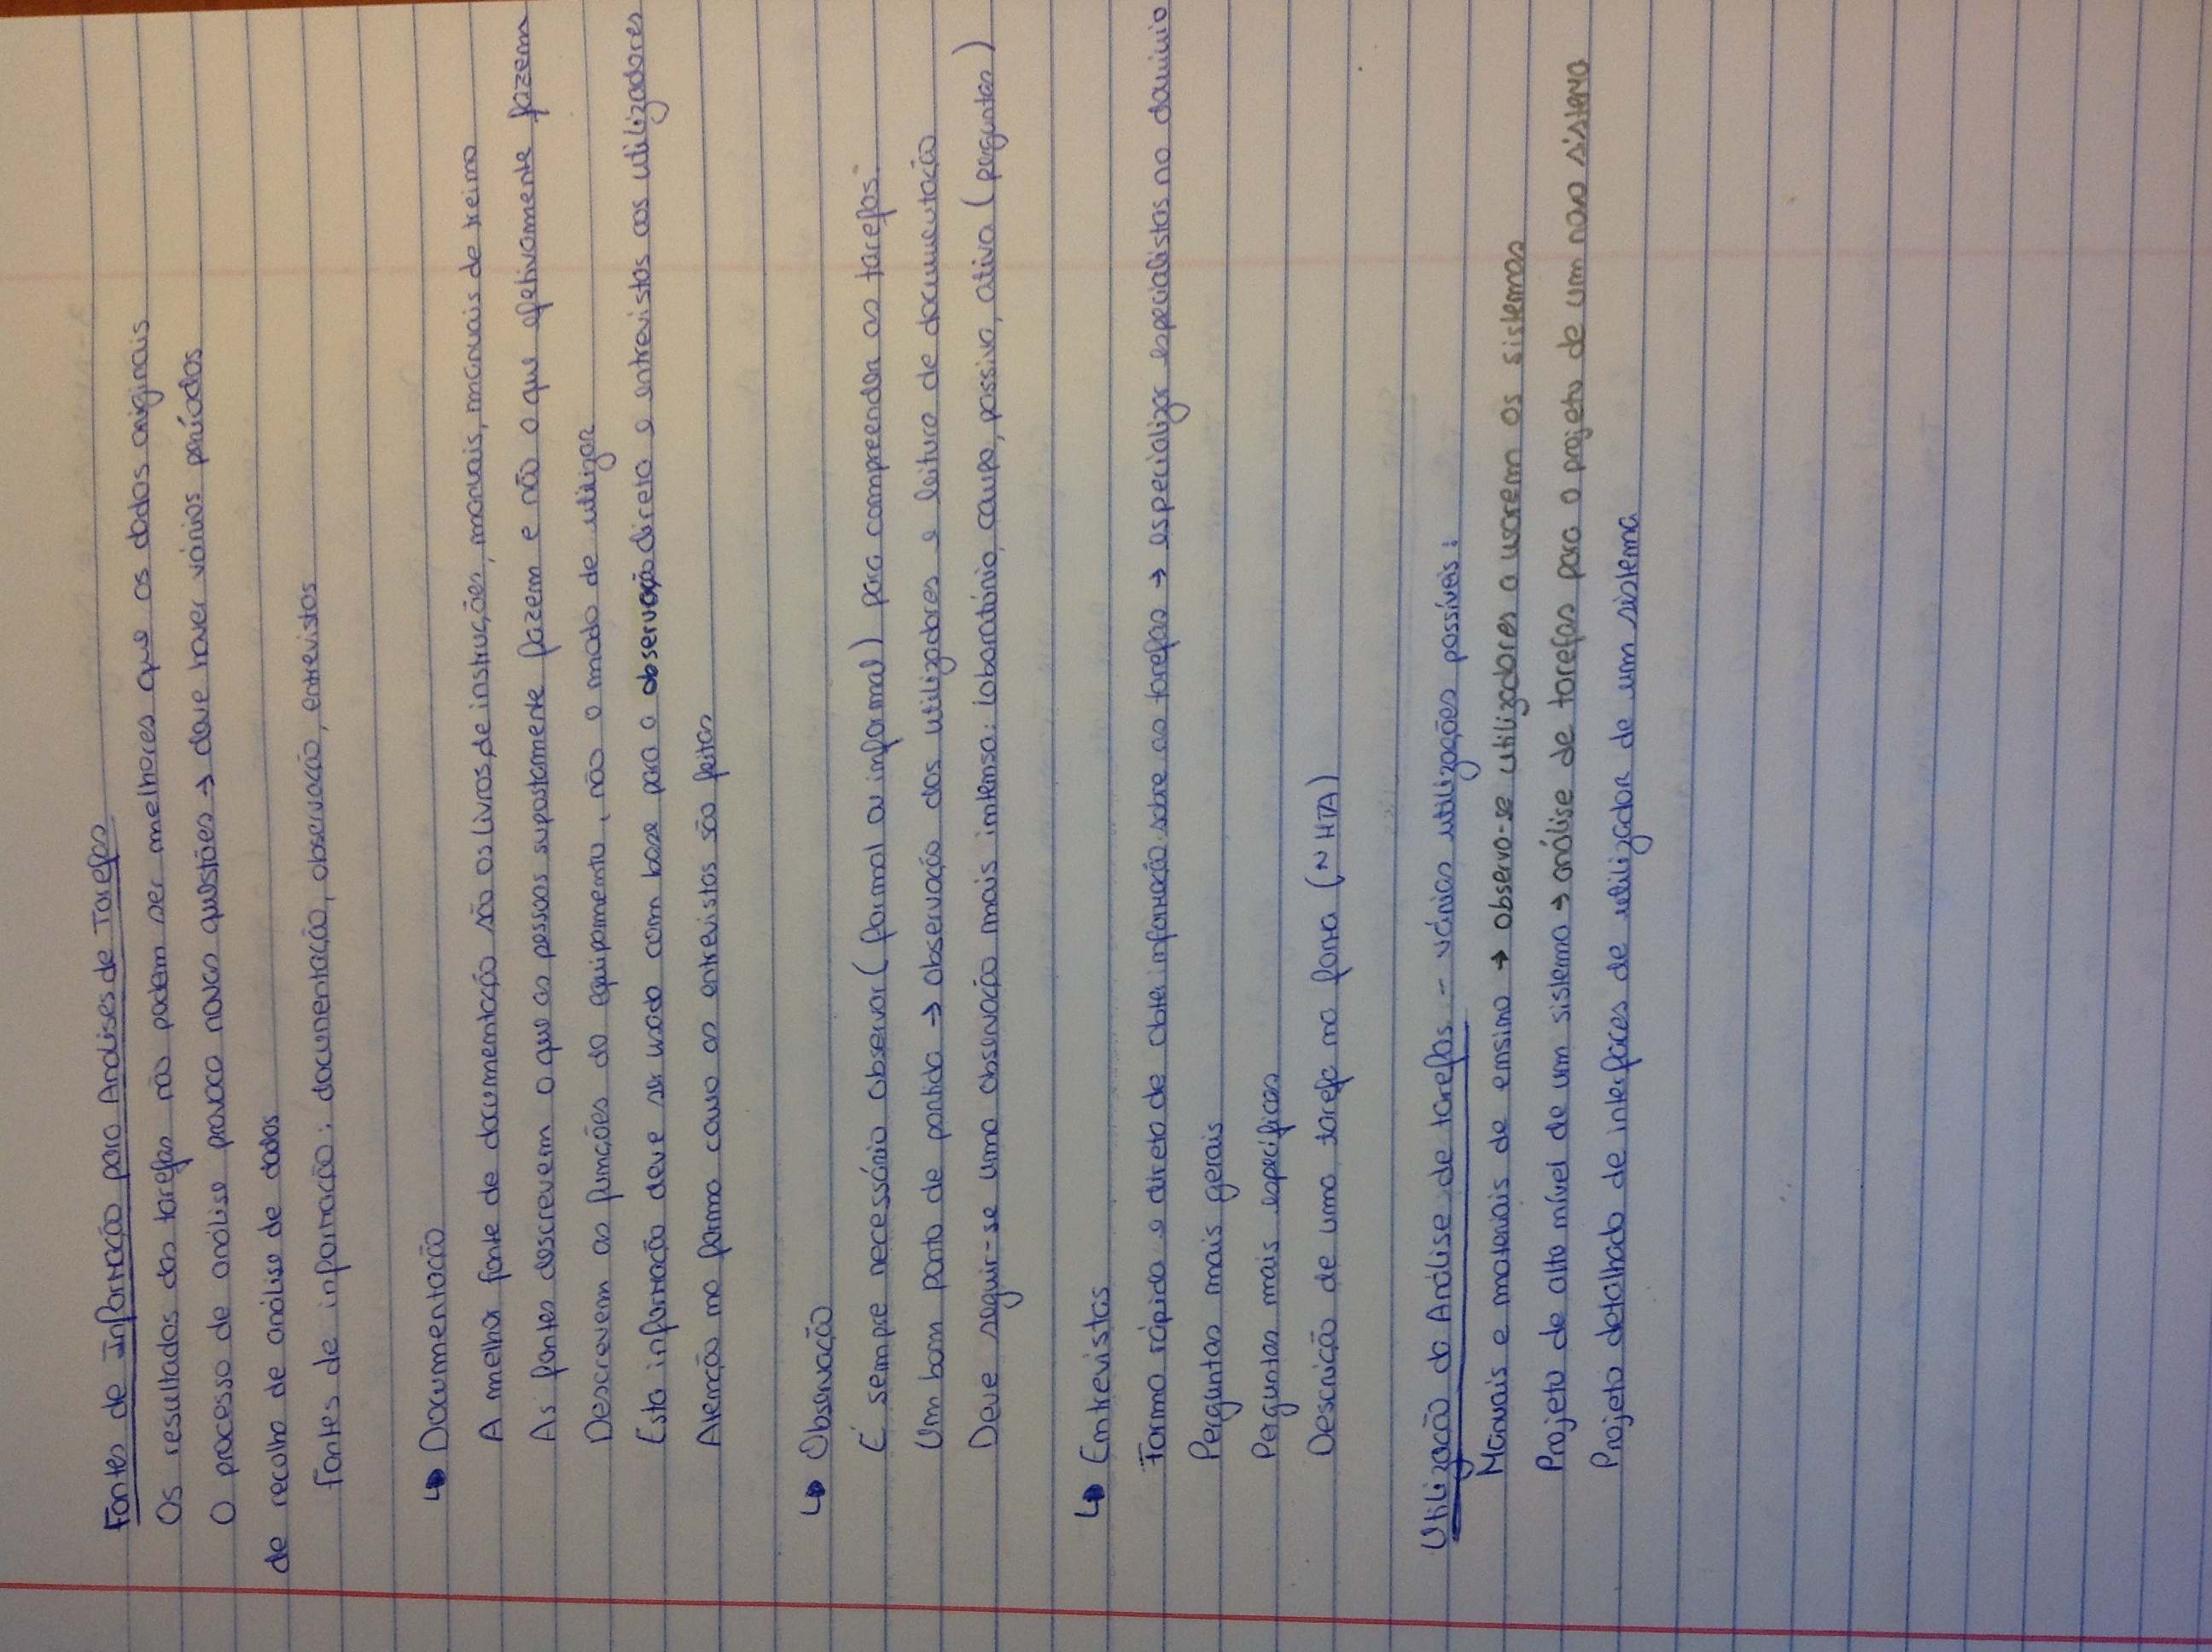 Fontes de Informação para Análises de Tarefas
Os resultados das tarefas não podem ser melhores que os dados originais
O processo de análise provoca novas questões → deve haver vários períodos
de recolha de análise de dados
fontes de informação: documentação, observação, entrevistas
↳ Documentação
A melhor fonte de documentação são os livros de instruções, manuais, manuais de treino
As fontes descrevem o que as pessoas supostamente fazem e não o que efetivamente fazem
Descrevem as funções do equipamento, não o modo de utilizar
Esta informação deve ser usada com base para a observação direta e entrevistas aos utilizadores
Atenção na forma como as entrevistas são feitas
↳ Observação
É sempre necessário observar (formal ou informal) para compreender as tarefas.
Um bom ponto de partida → observação dos utilizadores e leitura de documentação
Deve seguir-se uma observação mais intensa: laboratório, campo, passiva, ativa (perguntas)
↳ Entrevistas
Forma rápida e direta de obter informação sobre as tarefas → especializar especialistas no domínio
Perguntas mais gerais
Perguntas mais específicas
Descrição de uma tarefa na forma (~HTA)
Utilização da Análise de tarefas - várias utilizações possíveis:
Manuais e materiais de ensino → observa-se utilizadores a usarem os sistemas
Projeto de alto nível de um sistema → análise de tarefas para o projeto de um novo sistema
Projeto detalhado de interfaces de utilizador de um sistema